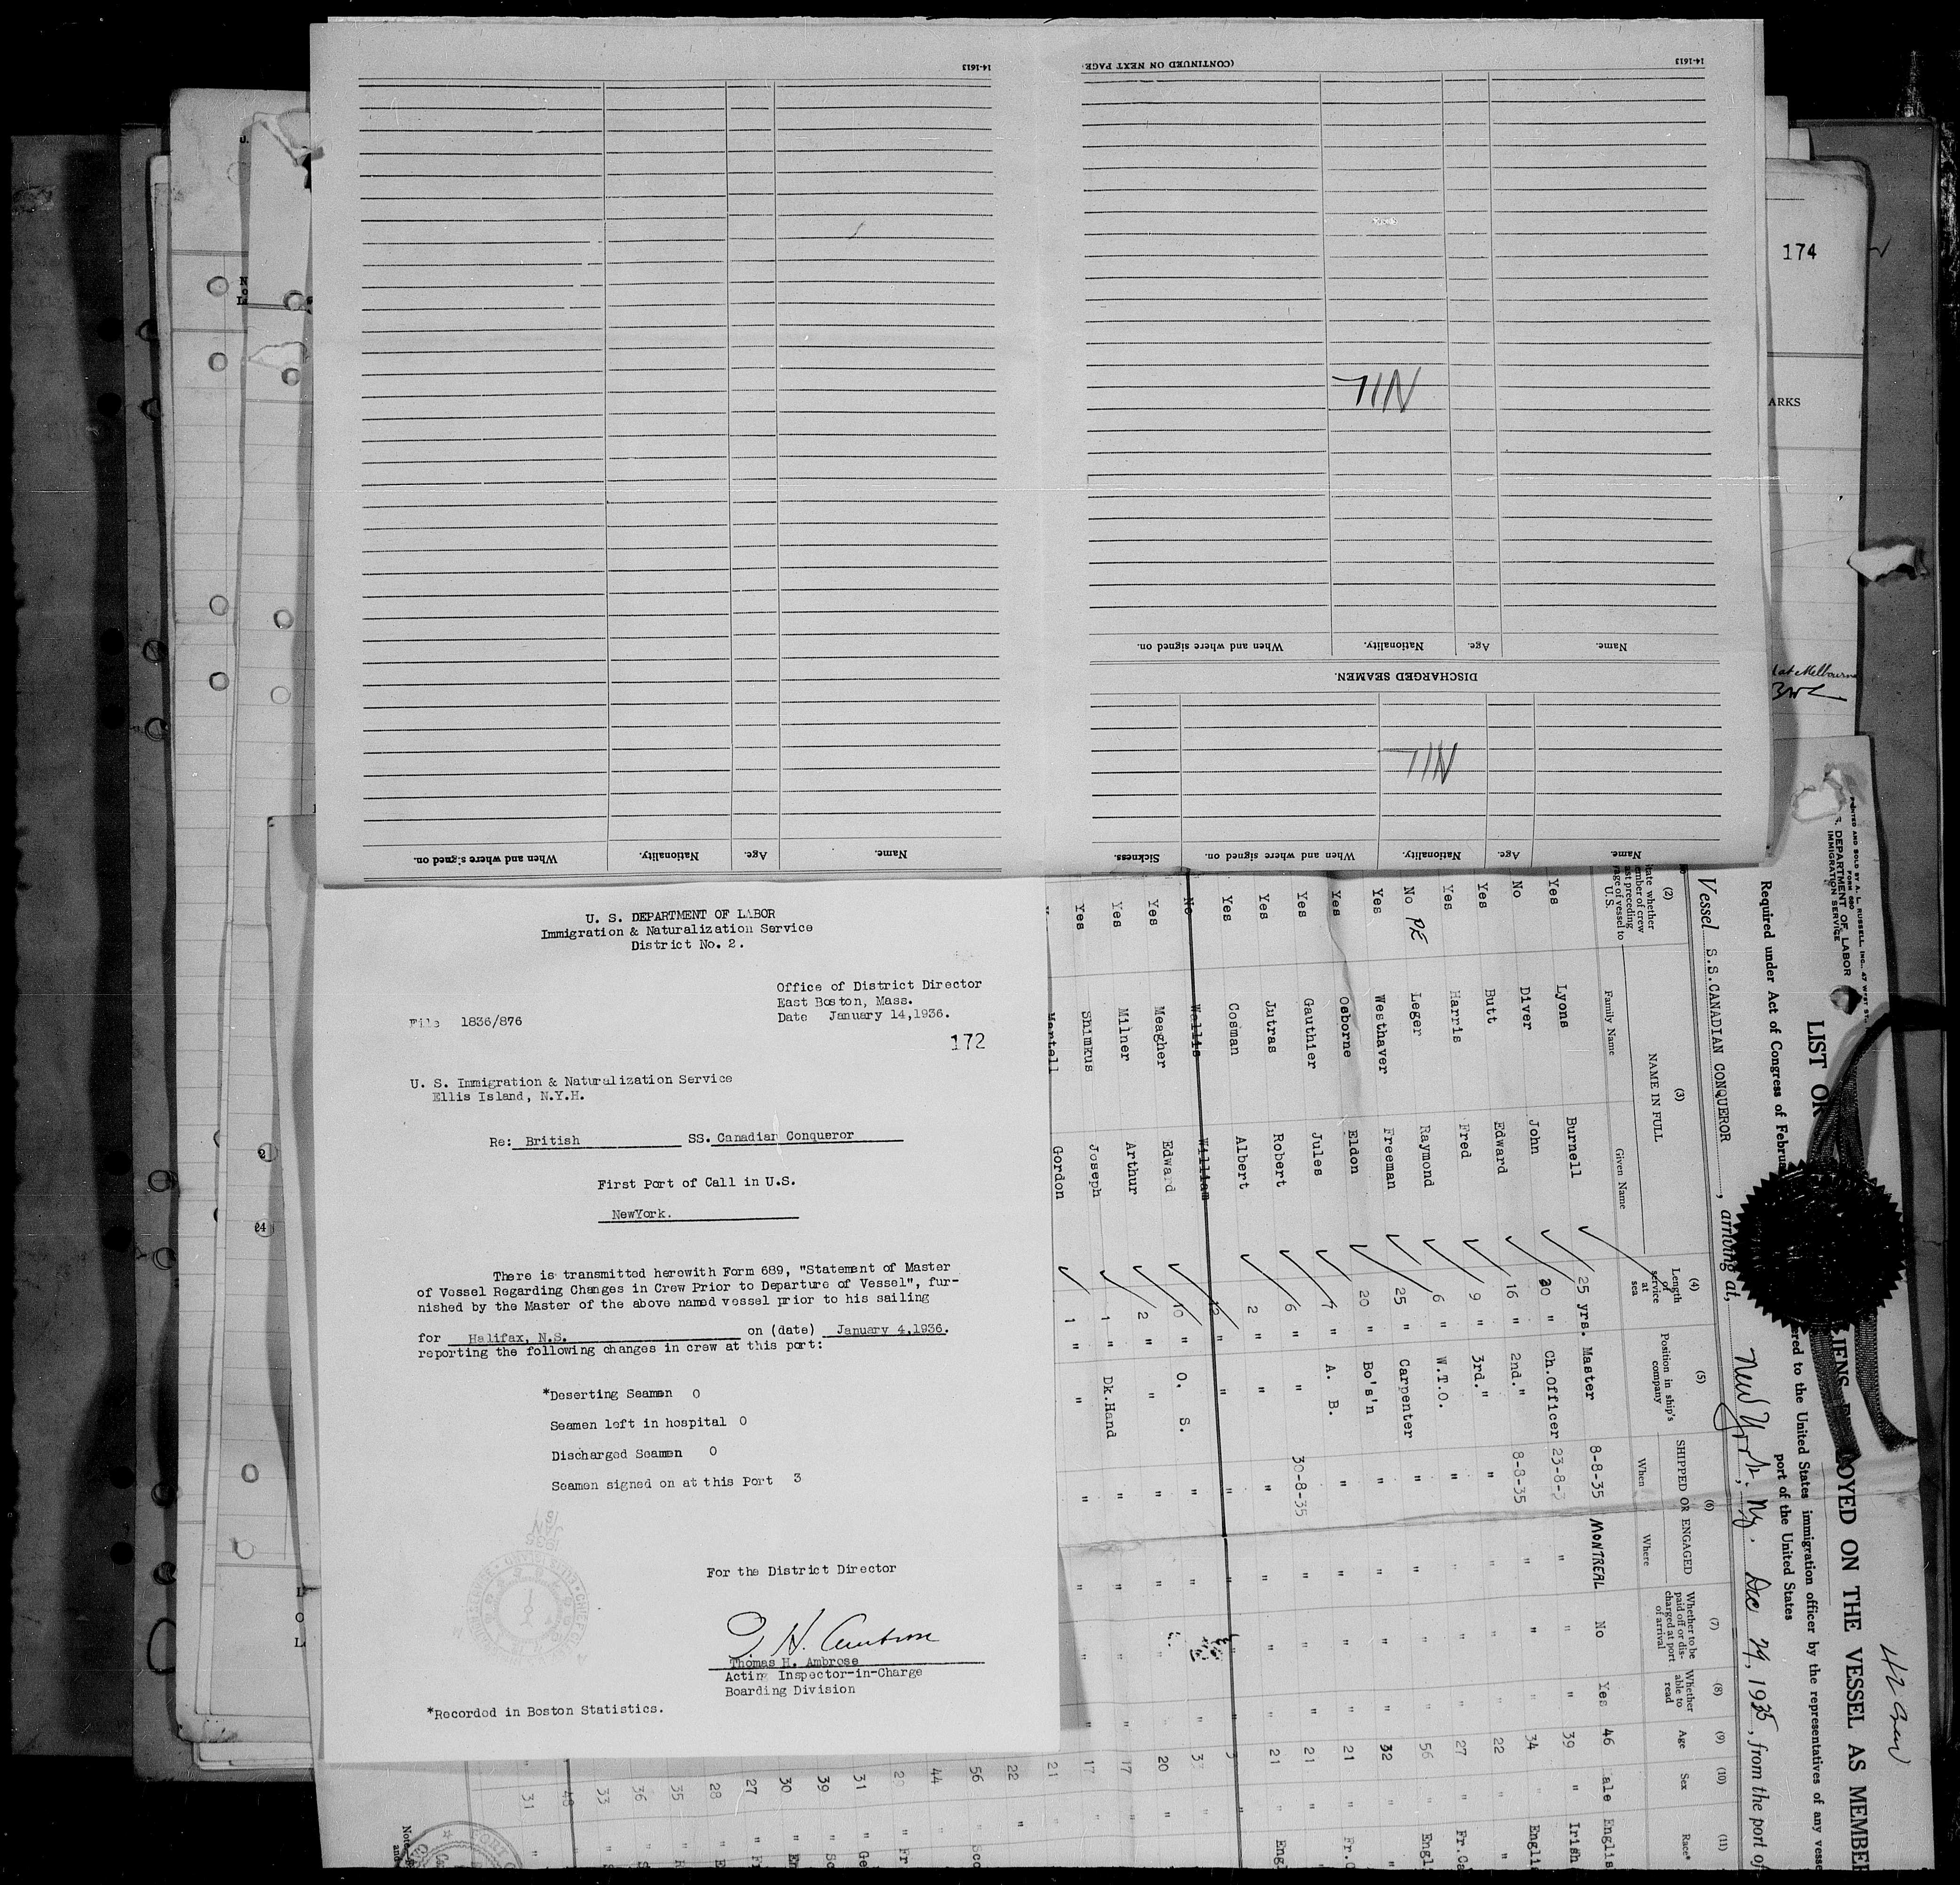 14-1613
(CONTINUED ON NEXT PAGE)
14-1613
NIL
Name.
Age.
Nationality.
When and where signed on.
DISCHARGED SEAMEN.
NIL
Name.
Age.
Nationality.
When and where signed on.
Sickness.
Name.
Age.
Nationality.
When and where signed on.
174
ARKS
at Melbourne
U. S. DEPARTMENT OF LABOR
Immigration & Naturalization Service
District No. 2.
Office of District Director
East Boston, Mass.
Date January 14,1936.
File 1836/876
172
U. S. Immigration & Naturalization Service
Ellis Island, N.Y.H.
Re: British SS. Canadian Conqueror
First Port of Call in U.S.
NewYork.
There is transmitted herewith Form 689, "Statement of Master
of Vessel Regarding Changes in Crew Prior to Departure of Vessel", fur-
nished by the Master of the above named vessel prior to his sailing
for Halifax, N.S. on (date) January 4,1936.
reporting the following changes in crew at this port:
*Deserting Seamen 0
Seamen left in hospital 0
Discharged Seamen 0
Seamen signed on at this Port 3
For the District Director
T. H. Ambrose
Thomas H. Ambrose
Acting Inspector-in-Charge
Boarding Division
*Recorded in Boston Statistics.
PRINTED AND SOLD BY A. L. RUSSELL, INC., 47 WEST ST.,
FORM 680
DEPARTMENT OF LABOR
IMMIGRATION SERVICE
LIST OR LIENS OYED ON THE VESSEL AS MEMBER
Required under Act of Congress of Februa ered to the United States immigration officer by the representatives of any vesse
port of the United States
Vessel S.S.CANADIAN CONQUEROR, arriving at, New York, Ny. Dec 29, 1935, from the port of
(2) (3) (4) (5) (6) (7) (8) (9) (10) (11)
NAME IN FULL
Family Name Given Name
Length of service at sea
Position in ship's company
SHIPPED OR ENGAGED
When Where
Whether to be paid off or discharged at port of arrival
Whether able to read
Age
Sex
Race*
Yes Lyons Burnell 25 yrs. Master 8-8-35 MONTREAL No Yes 46 ale Englis
No Diver John 30 " Ch.Officer 23-8-3 " " " 39 " Irish
Yes Butt Edward 16 " 2nd." 8-8-35 " " " 34 " Engli
Yes Harris Fred 9 " 3rd." " " " " 22 " "
No Leger Raymond 6 " W.T.O. " " " " 27 " Fr.Ca
Yes Westhaver Freeman 25 " Carpenter " " " " 56 " Engl
Yes Osborne Eldon 20 " Bo's'n " " " " 32 " "
Yes Gauthier Jules 7 " A. B. " " " " 21 " Fr.C
Yes Jutras Robert 6 " " 30-8-35 " " " 21 "
Yes Cosman Albert 2 " " " " " " 21 " Engl
No Wallis William 12 " " "
Yes Meagher Edward 10 " O. S. " " " " 33
Yes Milner Arthur 2 " " " " " " 20 "
Yes Shimkus Joseph 1 " Dk.Hand " " " " 17 "
Martell Gordon 1 " " " " " " 17 "
21
22 "
56
44
31
39
30
27
28
35
36
33
48
31
24